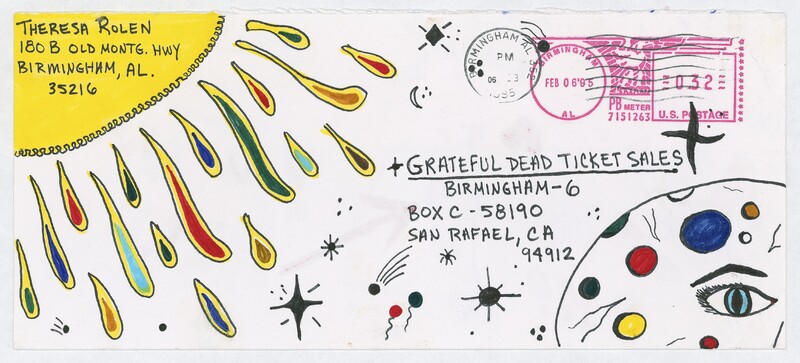 THERESA ROLEN
180 B OLD MONTG. HWY
BIRMINGHAM, AL.
35216
BIRMINGHAM AL 352
PM
06
1995
BIRMINGHAM
FEB 06'95
AL
PB METER
7151263
0.32
U.S. POSTAGE
GRATEFUL DEAD TICKET SALES
BIRMINGHAM-6
BOX C - 58190
SAN RAFAEL, CA
94912